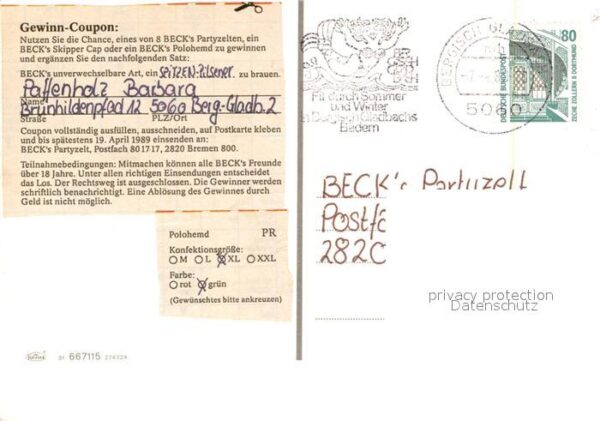 Gewinn-Coupon:
Nutzen Sie die Chance, eines von 8 BECK's Partyzelten, ein
BECK's Skipper Cap oder ein BECK's Polohemd zu gewinnen
und ergänzen Sie den nachfolgenden Satz:
BECK's unverwechselbare Art, ein SEITZEN-PILSENER zu brauen.
Paffenholz Barbara
Name
Brunhildenpfad 12 5060 Berg.-Gladb. 2
Straße PLZ/Ort
Coupon vollständig ausfüllen, ausschneiden, auf Postkarte kleben
und bis spätestens 19. April 1989 einsenden an:
BECK's Partyzelt, Postfach 801717, 2820 Bremen 800.
Teilnahmebedingungen: Mitmachen können alle BECK's Freunde
über 18 Jahre. Unter allen richtigen Einsendungen entscheidet
das Los. Der Rechtsweg ist ausgeschlossen. Die Gewinner werden
schriftlich benachrichtigt. Eine Ablösung des Gewinnes durch
Geld ist nicht möglich.
Polohemd PR
Konfektionsgröße:
M L XL XXL
Farbe:
rot grün
(Gewünschtes bitte ankreuzen)
667115
Fit durch Sommer
und Winter
in Bergisch Gladbachs
Bädern
BERGISCH
5060
80
DEUTSCHE BUNDESPOST
ZECHE ZOLLERN II DORTMUND
BECK's Partyzelt
Postfa
2820
privacy protection
Datenschutz